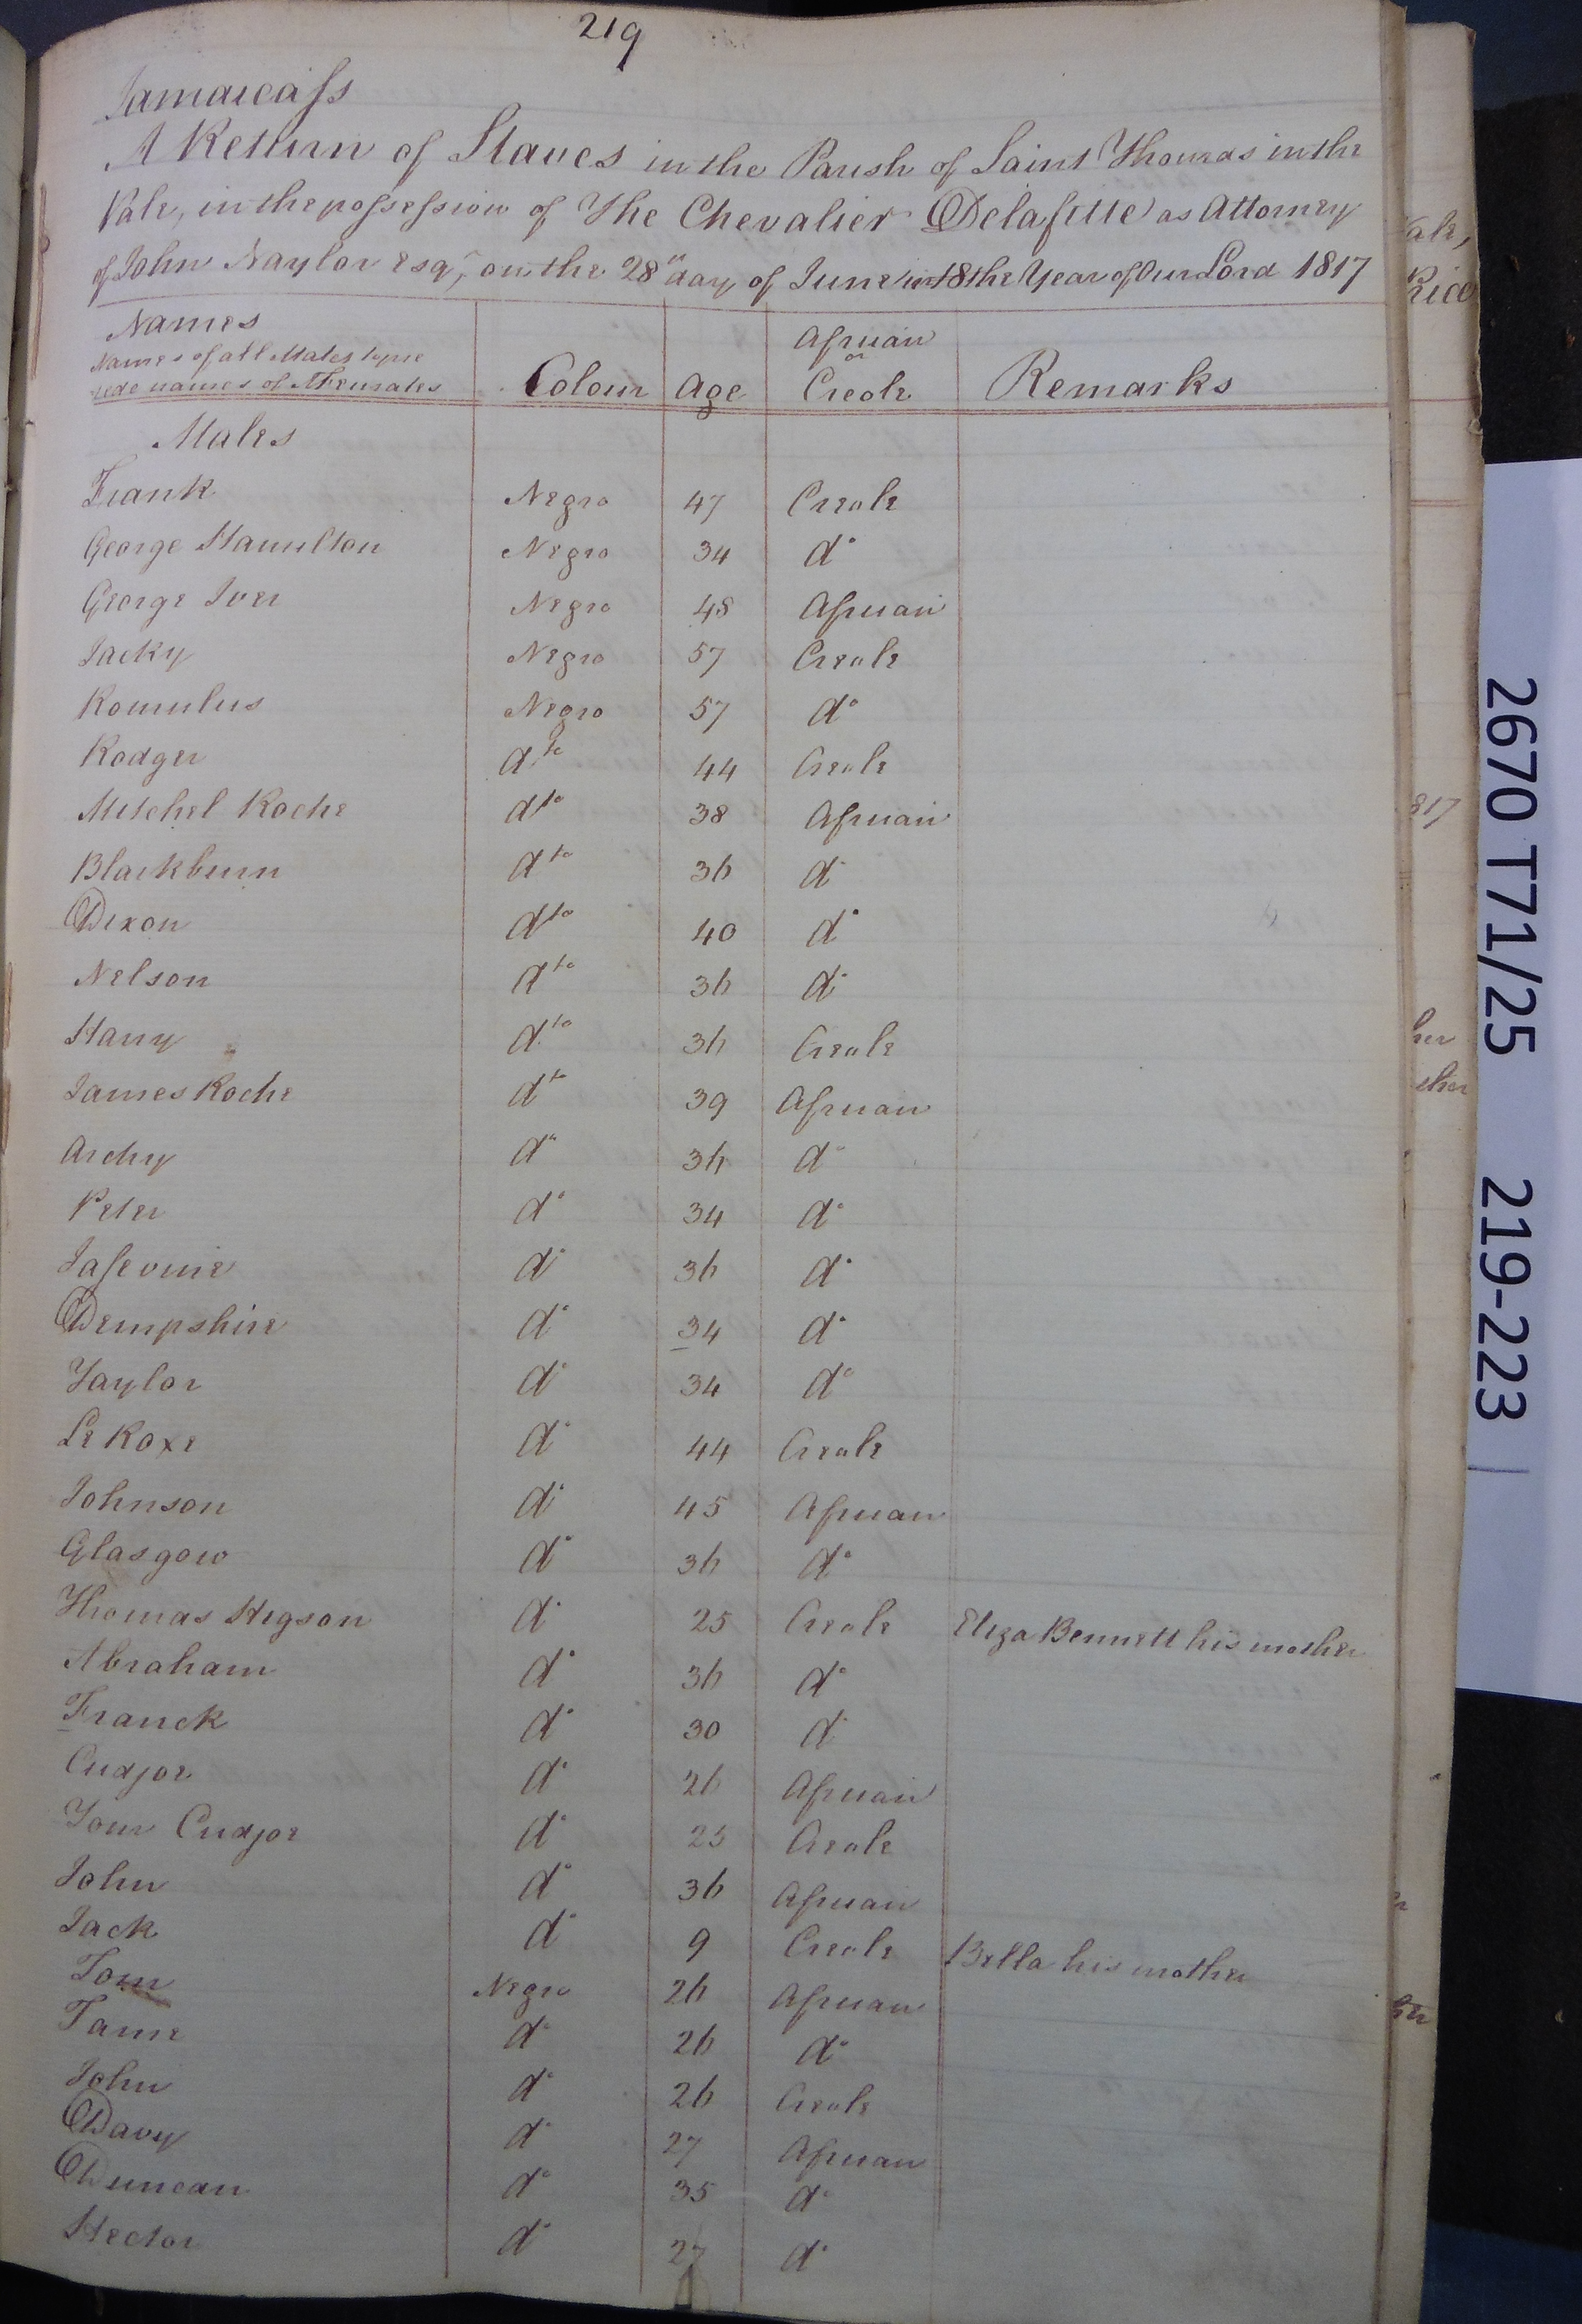 219
Jamaica ss
A Return of Slaves in the Parish of Saint Thomas in the
Vale, in the possession of The Chevalier Delafitte as Attorney
of John Naylor Esqr, on the 28th day of June in the Year of Our Lord 1817
Names
Names of all Males to pre
cede names of Females Colour Age African or Creole Remarks
Males
Frank Negro 47 Creole
George Hamilton Negro 34 do
George Iver Negro 48 African
Jacky Negro 57 Creole
Romulus Negro 57 do
Rodger dto 44 Creole
Mitchel Roche dto 38 African
Blackburn dto 36 do
Dixon dto 40 do
Nelson dto 36 do
Harry dto 36 Creole
James Roche dto 39 African
Archy do 36 do
Peter do 34 do
do 36 do
Dempshire do 34 do
Taylor do 34 do
Le Roxe do 44 Creole
Johnson do 45 African
Glasgow do 36 do
Thomas Higson do 25 Creole Eliza Bennett his mother
Abraham do 36 do
Franck do 30 do
Cudjoe do 26 African
Tom Cudjoe do 25 Creole
John do 36 African
Jack do 9 Creole Bella his mother
Tom Negro 26 African
do 26 do
John do 26 Creole
Davy do 27 African
Duncan do 35 do
Hector do 27 do
2670 T71/25 219-223